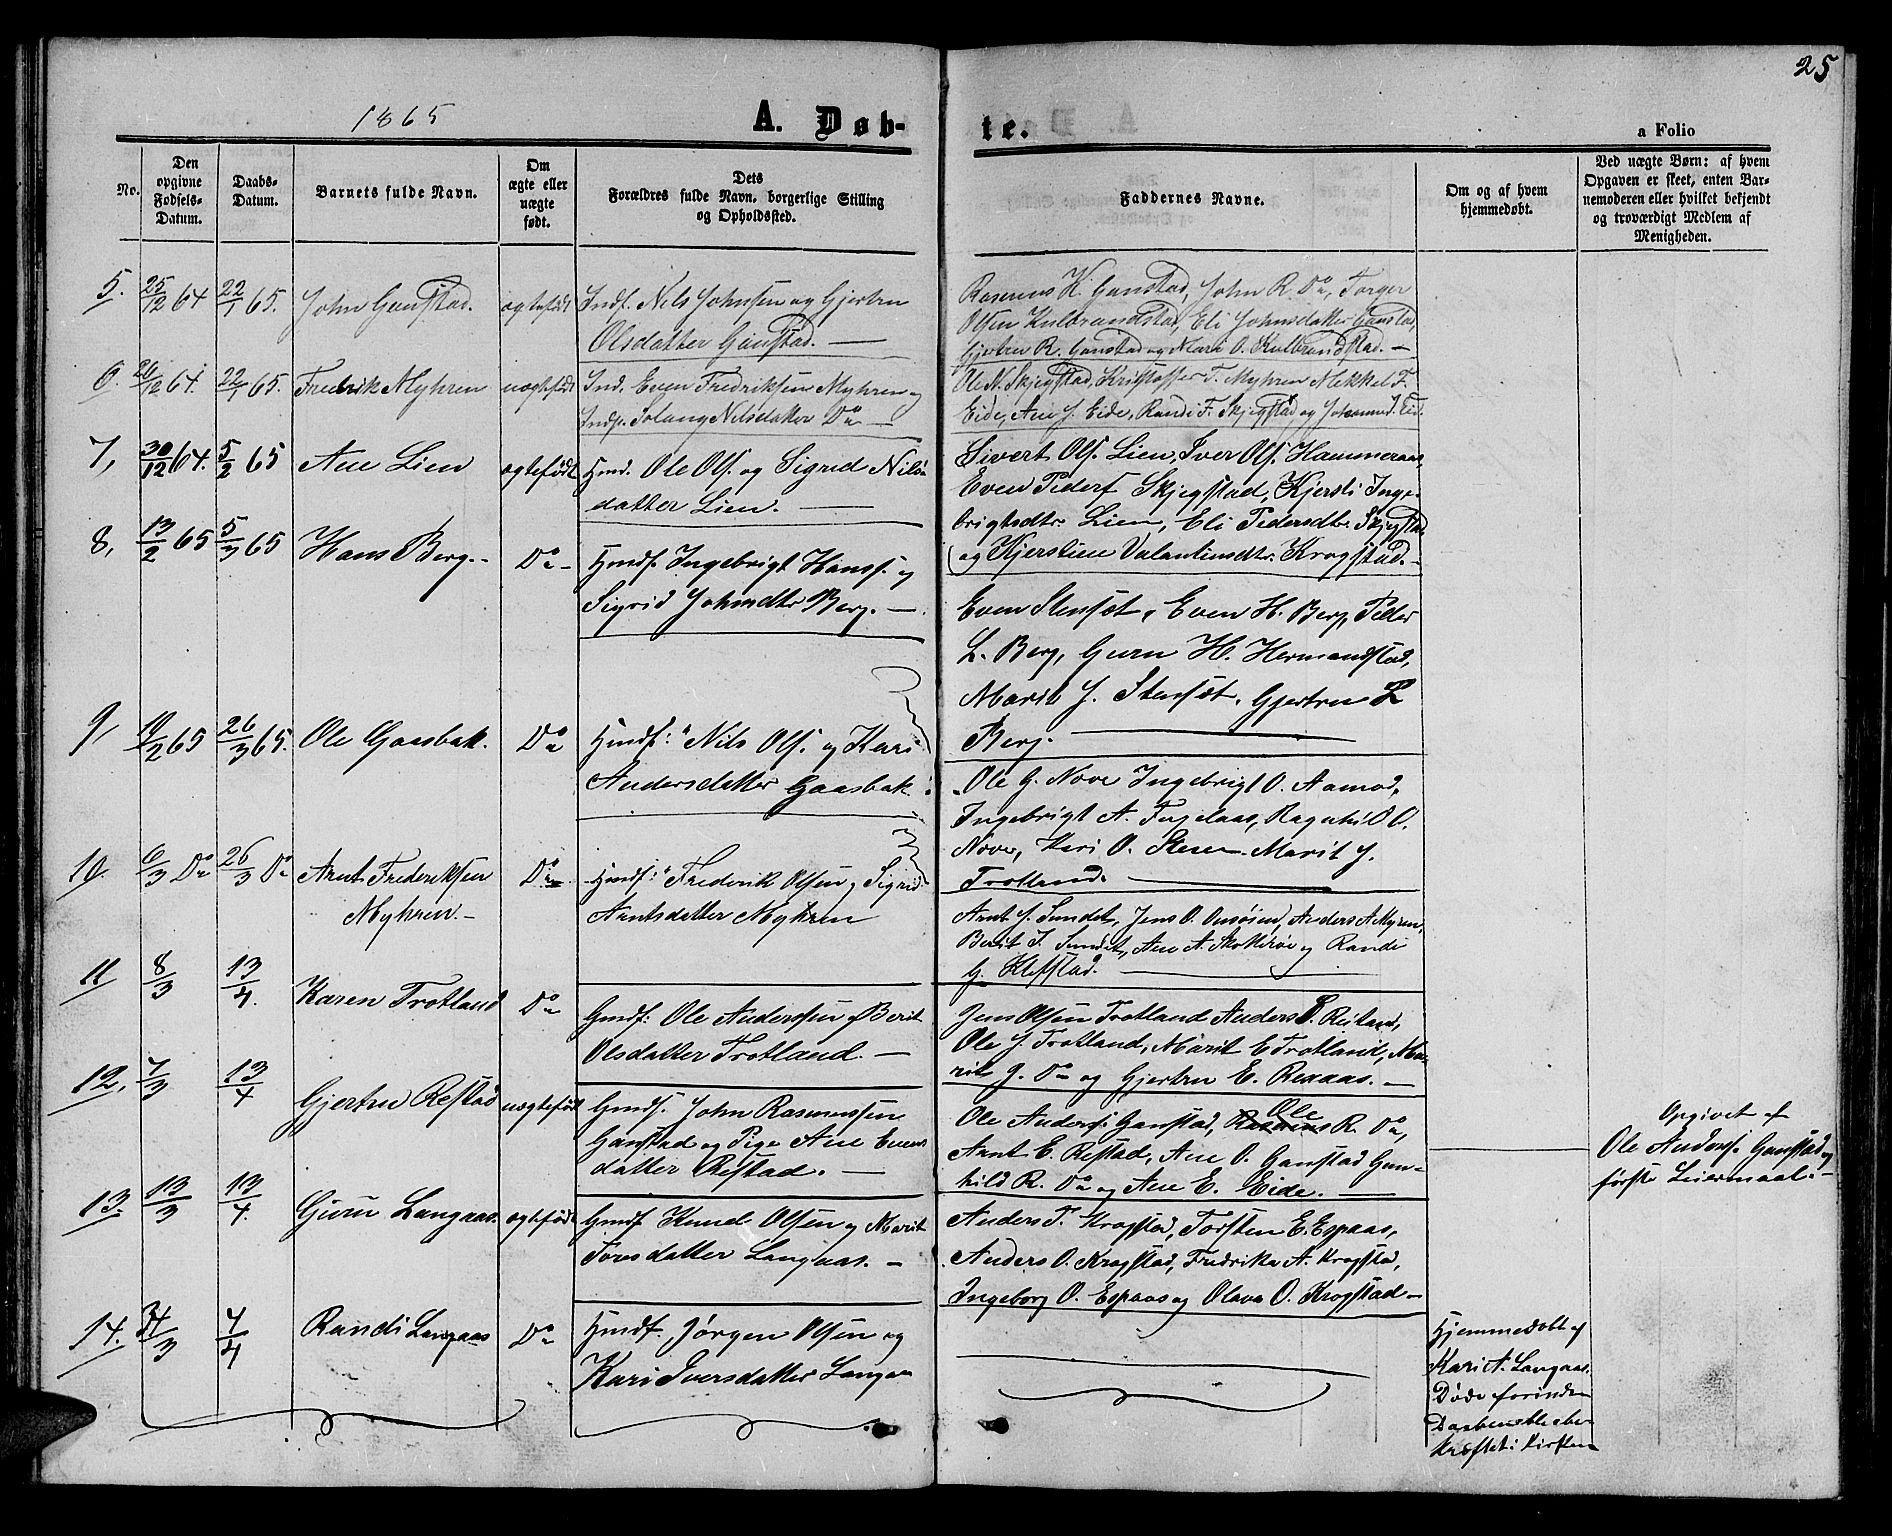 25
1865
A. Døb-
te.
a Folio
No.
Den
opgivne
Fødsels-
Datum.
Daabs-
Datum.
Barnets fulde Navn.
Om
ægte eller
uægte
født.
Dets
Forældres fulde Navn, borgerlige Stilling
og Opholdssted.
Faddernes Navne.
Om og af hvem
hjemmedøbt.
Ved uægte Børn: af hvem
Opgaven er skeet, enten Bar-
nemoderen eller hvilket bekjendt
og troværdigt Medlem af
Menigheden.
5. 25/12 64 22/1 65. John Ganstad. ægtefødt Indf. Nils Johnsen og Gjertru
Olsdatter Ganstad. —
Rasmus K. Ganstad, John R. Do, Torger
Olsen Kulbrandstad, Eli Johnsdatter Ganstad,
Gjertru R. Ganstad og Mari O. Kulbrandstad. —
6. 26/12 64. 22/1 65. Fredrik Myhren uægtefødt Ind. Even Fredriksen Myhren og
Indp. Solaug Nilsdatter Do —
Ole N. Skjegstad, Kristoffer F. Myhren Mekkel F.
Eide, Ane J. Eide, Randi F. Skjegstad og Johanna J. Eid.
7, 30/12 64. 5/2 65 Ane Lien ægtefødt Hmd. Ole Ols. og Sigrid Nils-
datter Lien. —
Sivert Ols. Lien, Iver Ols. Hammeraas,
Even Peders. Skjegstad, Kjersti Inge-
brigtsdtr. Lien, Eli Pedersdtr. Skjegstad
og Kjerstine Valantinsdtr. Krogstad. —
8, 13/2 65 5/3 65 Hans Berg. - Do - Hmdf. Ingebrigt Hanss. og
Sigrid Johnsdtr Berg. —
Even Stensæt, Even H. Berg, Peder
L. Berg, Guru H. Hermanstad,
Marit J. Stensæt, Gjertru L
Berg. —
9, 19/2 65 26/3 65. Ole Gaasbak. Do Hmdf: Nils Ols. og Kari
Andersdatter Gaasbak.
Ole G. Nove Ingebrigt O. Aamod,
Ingebrigt A. Fuglaas, Ragnhild O.
Nove, Kari O. Steen Marit J.
Trotland. —
10. 6/3 Do 26/3 Do Arnt Frederiksen
Myhren. -
Do Hmdf: Frederik Olsen og Sigrid
Arntsdatter Myhren
Arnt J. Sundet, Jens O. Onsøien, Anders A Myren,
Berit I. Sundet, Ane A. Skotterøe og Randi
G. Klefstad. —
11 8/3 13/4. Karen Trotland Do Gmdf: Ole Anderssen og Berit
Olsdatter Trotland. —
Jens Olsen Trotland Anders L. Reitaas,
Ole J. Trotland, Marit E Trotland, Ma-
rit J. Do og Gjertru E. Rexaas. —
12, 7/3 13/4 Gjertru Restad uægtefødt Gmdf. John Rasmussen
Ganstad og Pige Ane Evens
datter Restad. —
Ole Anders. Ganstad, Ole R. Do,
Arnt E. Restad, Ane O. Ganstad Gun-
hild R. Do og Ane E. Eide. —
Opgivet af
Ole Anders. Ganstad og
første Leiermaal. —
13. 13/3 13/4. Guru Langaas. ægtefødt Gmdf Knud Olsen og Marit
Toresdatter Langaas. —
Anders T. Krogstad, Torsten E. Espaas,
Anders O. Krogstad, Fredrika A. Krogstad,
Ingeborg O. Espaas og Olava O. Krogstad —
14. 31/3 7/4 Randi Langaas Do Hmdf Jørgen Olsen og
Kari Iversdatter Langaas
Hjemmedøbt af
Kari A. Langaas.
Døde forinden
Daaben ble be-
kræftet i Kirken